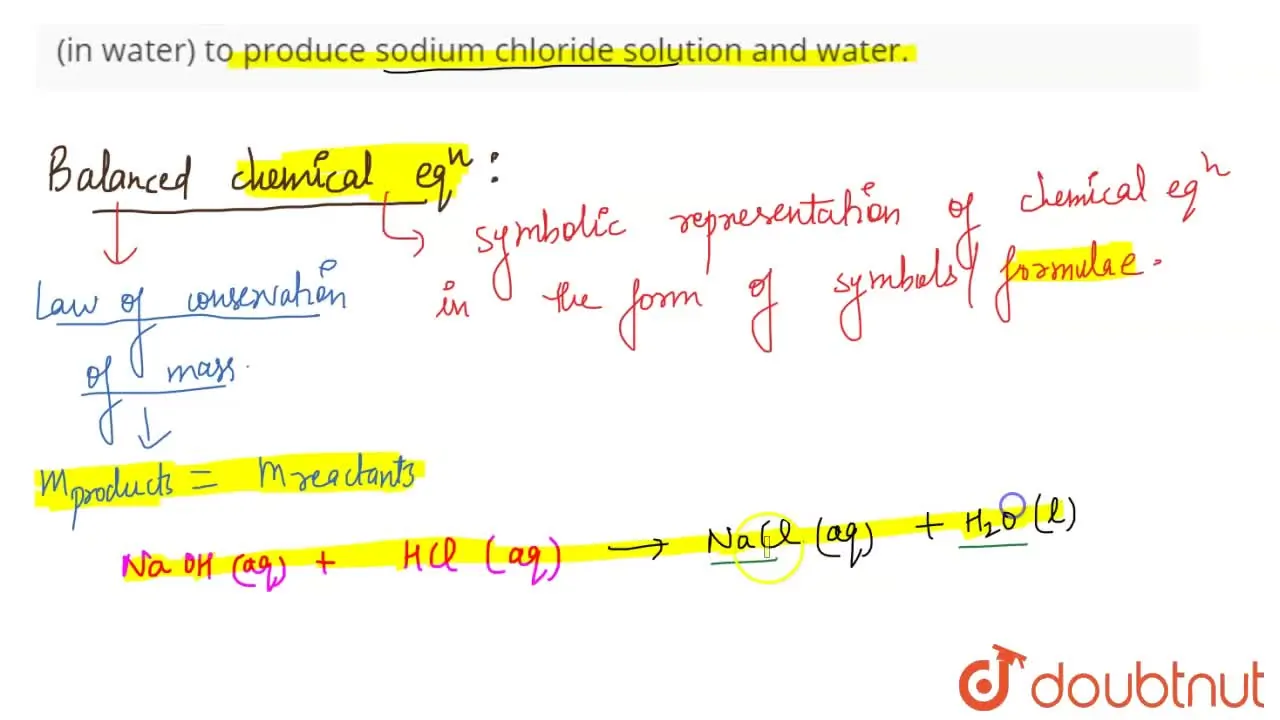 (in water) to produce sodium chloride solution and water.
Balanced chemical eqⁿ :
symbolic representation of chemical eqⁿ
in the form of symbols/ formulae.
Law of conservation
of mass.
Mproducts = Mreactants
NaOH (aq) + HCl (aq) → NaCl (aq) + H₂O (l)
doubtnut